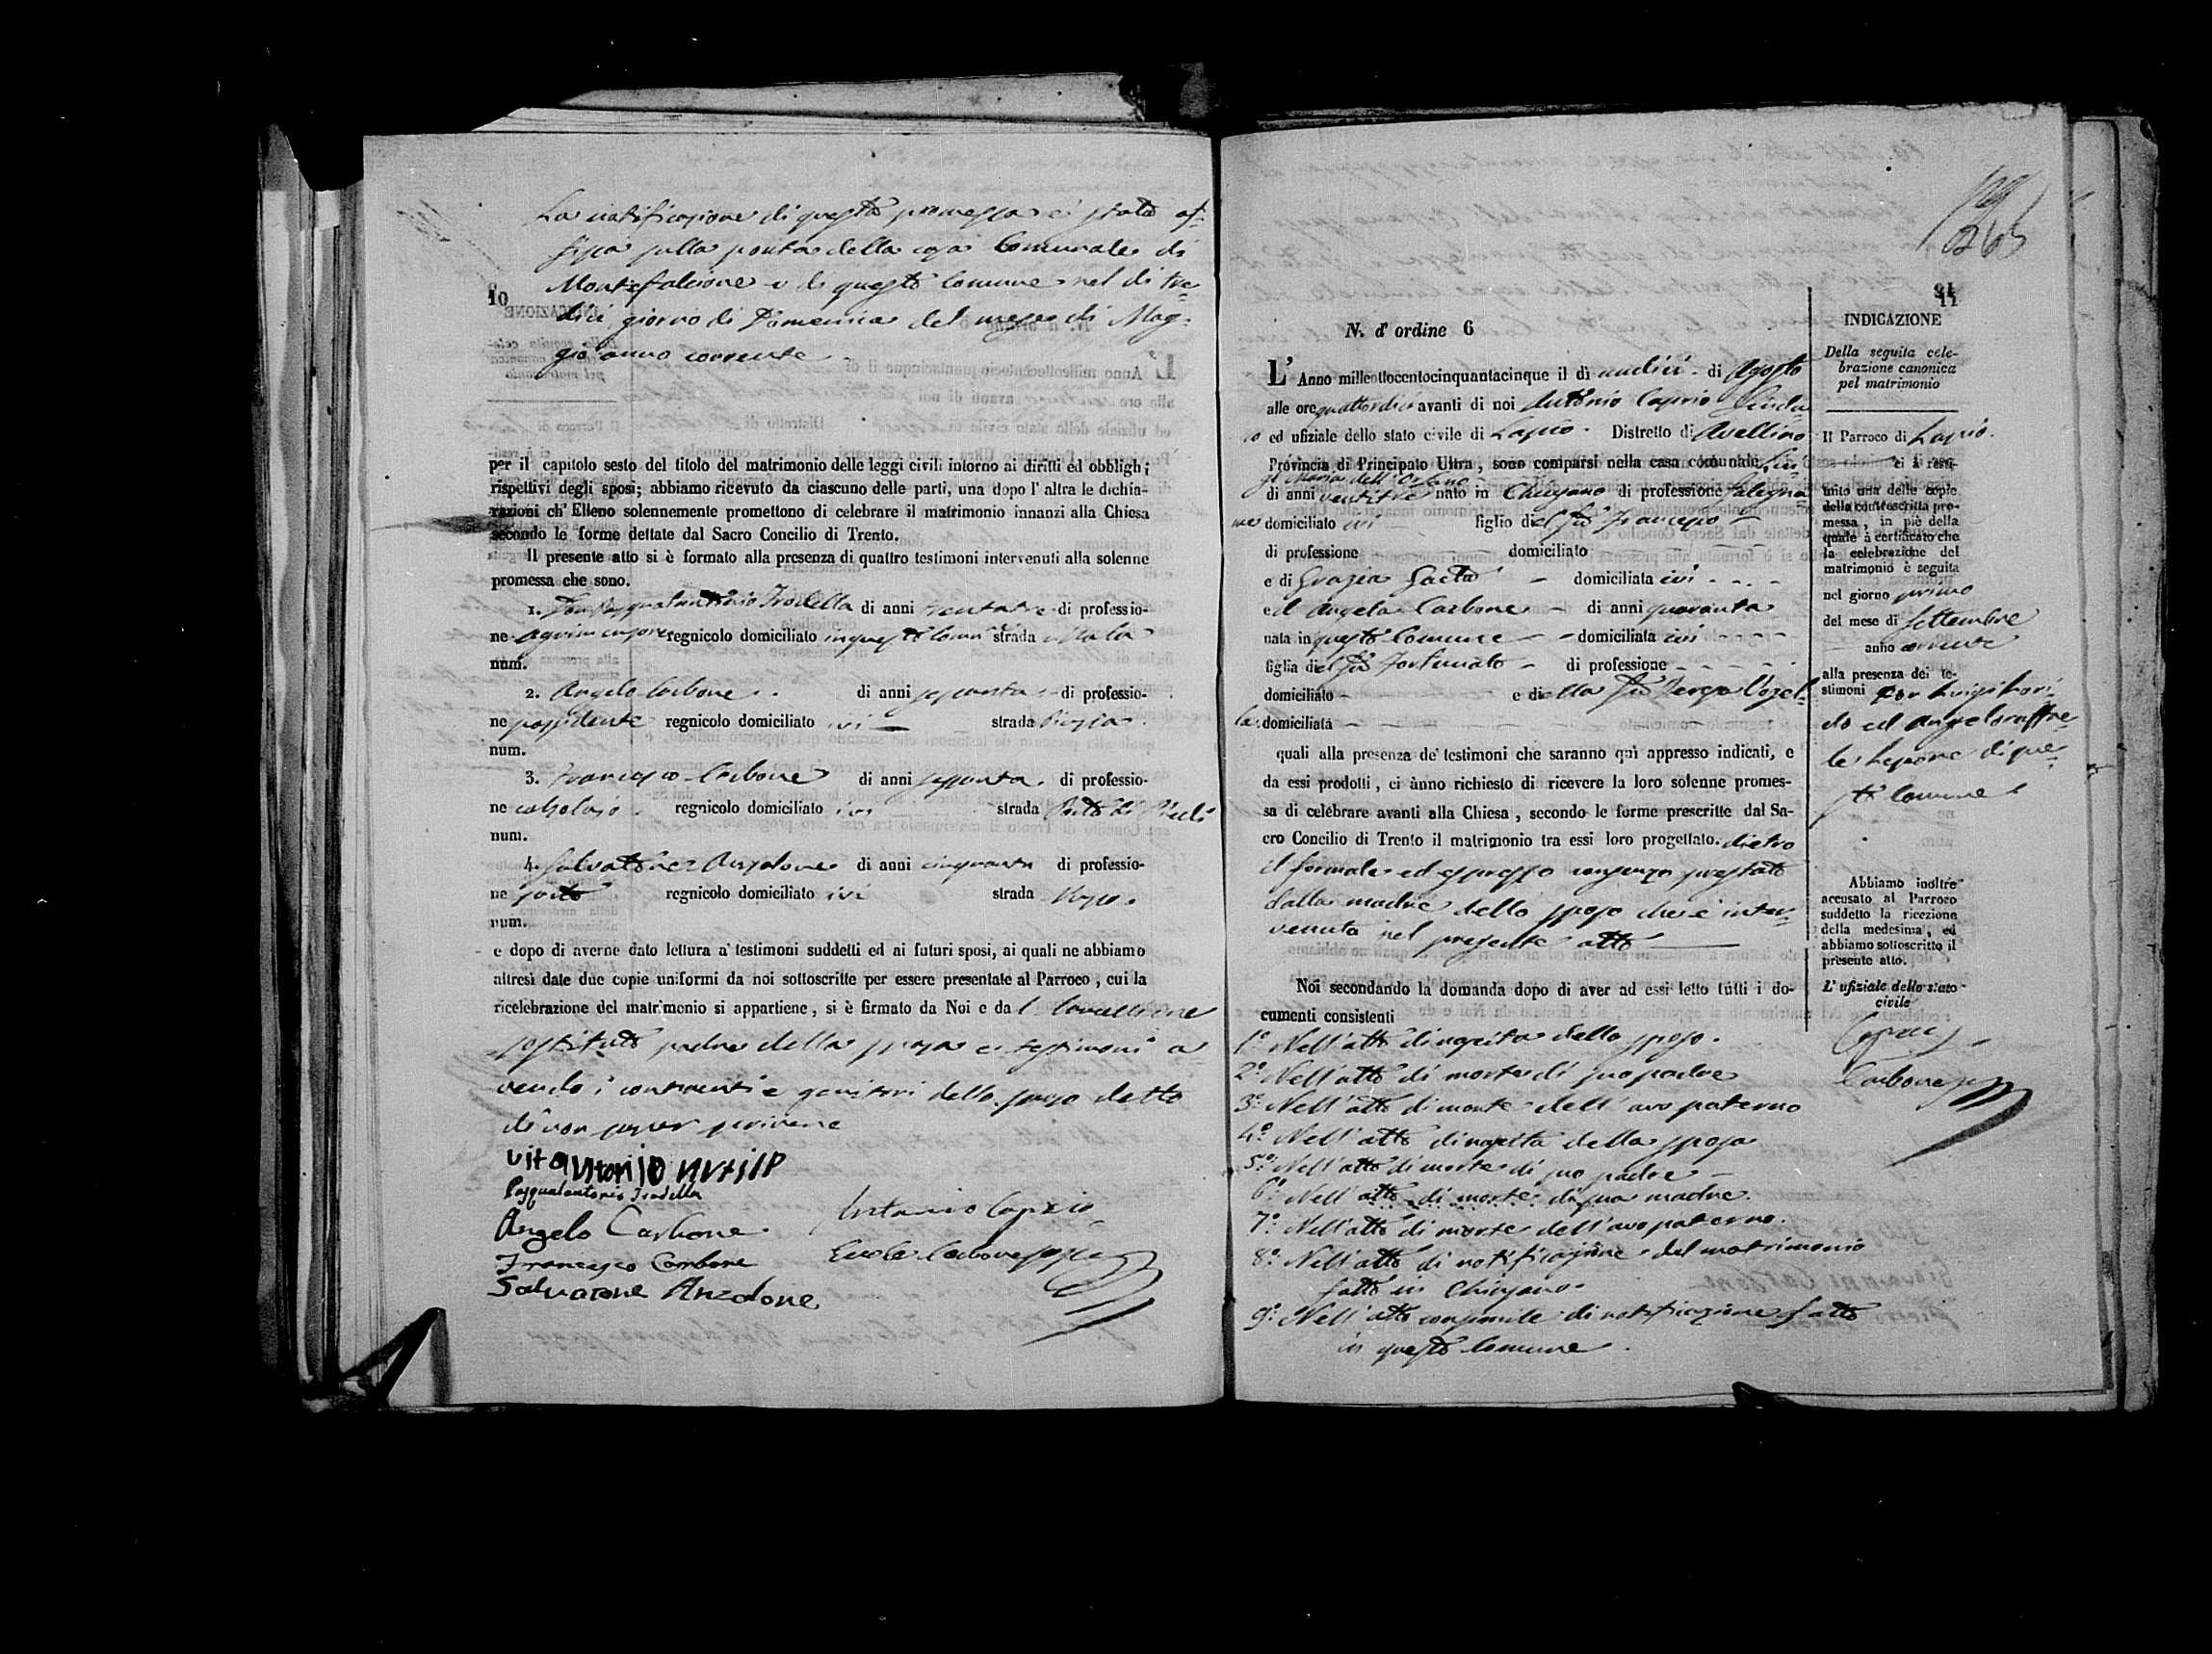 La notificazione di questa promessa è stata af-
fissa sulla porta della casa Comunale di
Montefalcione e di questo Comune nel di tre-
dici giorno di Domenica del mese di Mag-
gio anno corrente
10
per il capitolo sesto del titolo del matrimonio delle leggi civili intorno ai diritti ed obblighi
rispettivi degli sposi; abbiamo ricevuto da ciascuno delle parti, una dopo l' altra le dichia-
razioni ch' Elleno solennemente promettono di celebrare il matrimonio innanzi alla Chiesa
secondo le forme dettate dal Sacro Concilio di Trento.
Il presente atto si è formato alla presenza di quattro testimoni intervenuti alla solenne
promessa che sono.
1. Don Pasqualantonio Frodella di anni trentatre di professio-
ne Agrimensore regnicolo domiciliato in questo Comune strada
num.
2. Angelo Carbone di anni sessanta di professio-
ne possidente regnicolo domiciliato ivi strada Piazza
num.
3. Francesco Carbone di anni sessanta di professio-
ne calzolajo regnicolo domiciliato ivi strada
num.
4. Salvatore Anzalone di anni cinquanta di professio-
ne sarto regnicolo domiciliato ivi strada
num.
e dopo di averne dato lettura a' testimoni suddetti ed ai futuri sposi, ai quali ne abbiamo
altresì date due copie uniformi da noi sottoscritte per essere presentate al Parroco , cui la
ricelebrazione del matrimonio si appartiene , si è firmato da Noi e dal Cancelliere
sostituto padre della sposa e testimoni a-
vendo i contraenti e genitori dello sposo detto
di non saper scrivere
Pasqualantonio Frodella
Angelo Carbone
Antonio Caprio
Francesco Carbone
Salvatore Anzalone
265
11
N. d' ordine 6
L' Anno millottocentocinquantacinque il dì undici di Agosto
alle ore quattordici avanti di noi Antonio Caprio Sinda-
co ed ufiziale dello stato civile di Lapio Distretto di Avellino
Provincia di Principato Ultra , sono comparsi nella casa comunale
di anni ventitre nato in Chiusano di professione falegna-
me domiciliato ivi figlio del fu Francesco
di professione domiciliato
e di Grazia Saeta domiciliata ivi
ed Angela Carbone di anni quaranta
nata in questo Comune domiciliata ivi
figlia del fu Fortunato di professione
domiciliato e della fu
domiciliata
quali alla presenza de' testimoni che saranno qui appresso indicati, e
da essi prodotti , ci ànno richiesto di ricevere la loro solenne promes-
sa di celebrare avanti alla Chiesa , secondo le forme prescritte dal Sa-
cro Concilio di Trento il matrimonio tra essi loro progettato. dietro
il formale ed espresso consenzo prestato
dalla madre dello sposo che è inter-
venuta nel presente atto
Noi secondando la domanda dopo di aver ad essi letto tutti i do-
cumenti consistenti
1º Nell'atto di nascita dello sposo.
2º Nell'atto di morte di suo padre
3º Nell'atto di morte dell'avo paterno
4º Nell'atto di nascita della sposa
5º Nell'atto di morte di suo padre
6º Nell'atto di morte di sua madre.
7º Nell'atto di morte dell'avo paterno.
8º Nell'atto di notificazione del matrimonio
fatto in Chiusano
9º Nell'atto consimile di notificazione fatto
in questo Comune.
INDICAZIONE
Della seguita cele-
brazione canonica
pel matrimonio
Il Parroco di Lapio.
ci à resti-
tuito una delle copie
della controscritta pro-
messa , in piè della
quale à certificato che
la celebrazione del
matrimonio è seguita
nel giorno primo
del mese di Settembre
anno corrente
alla presenza dei te-
stimoni
ed Angeloraffae-
le Lepore di que-
sto Comune
Abbiamo inoltre
accusato al Parroco
suddetto la ricezione
della medesima , ed
abbiamo sottoscritto il
presente atto.
L' ufiziale dello stato
civile
Caprio
Carbone